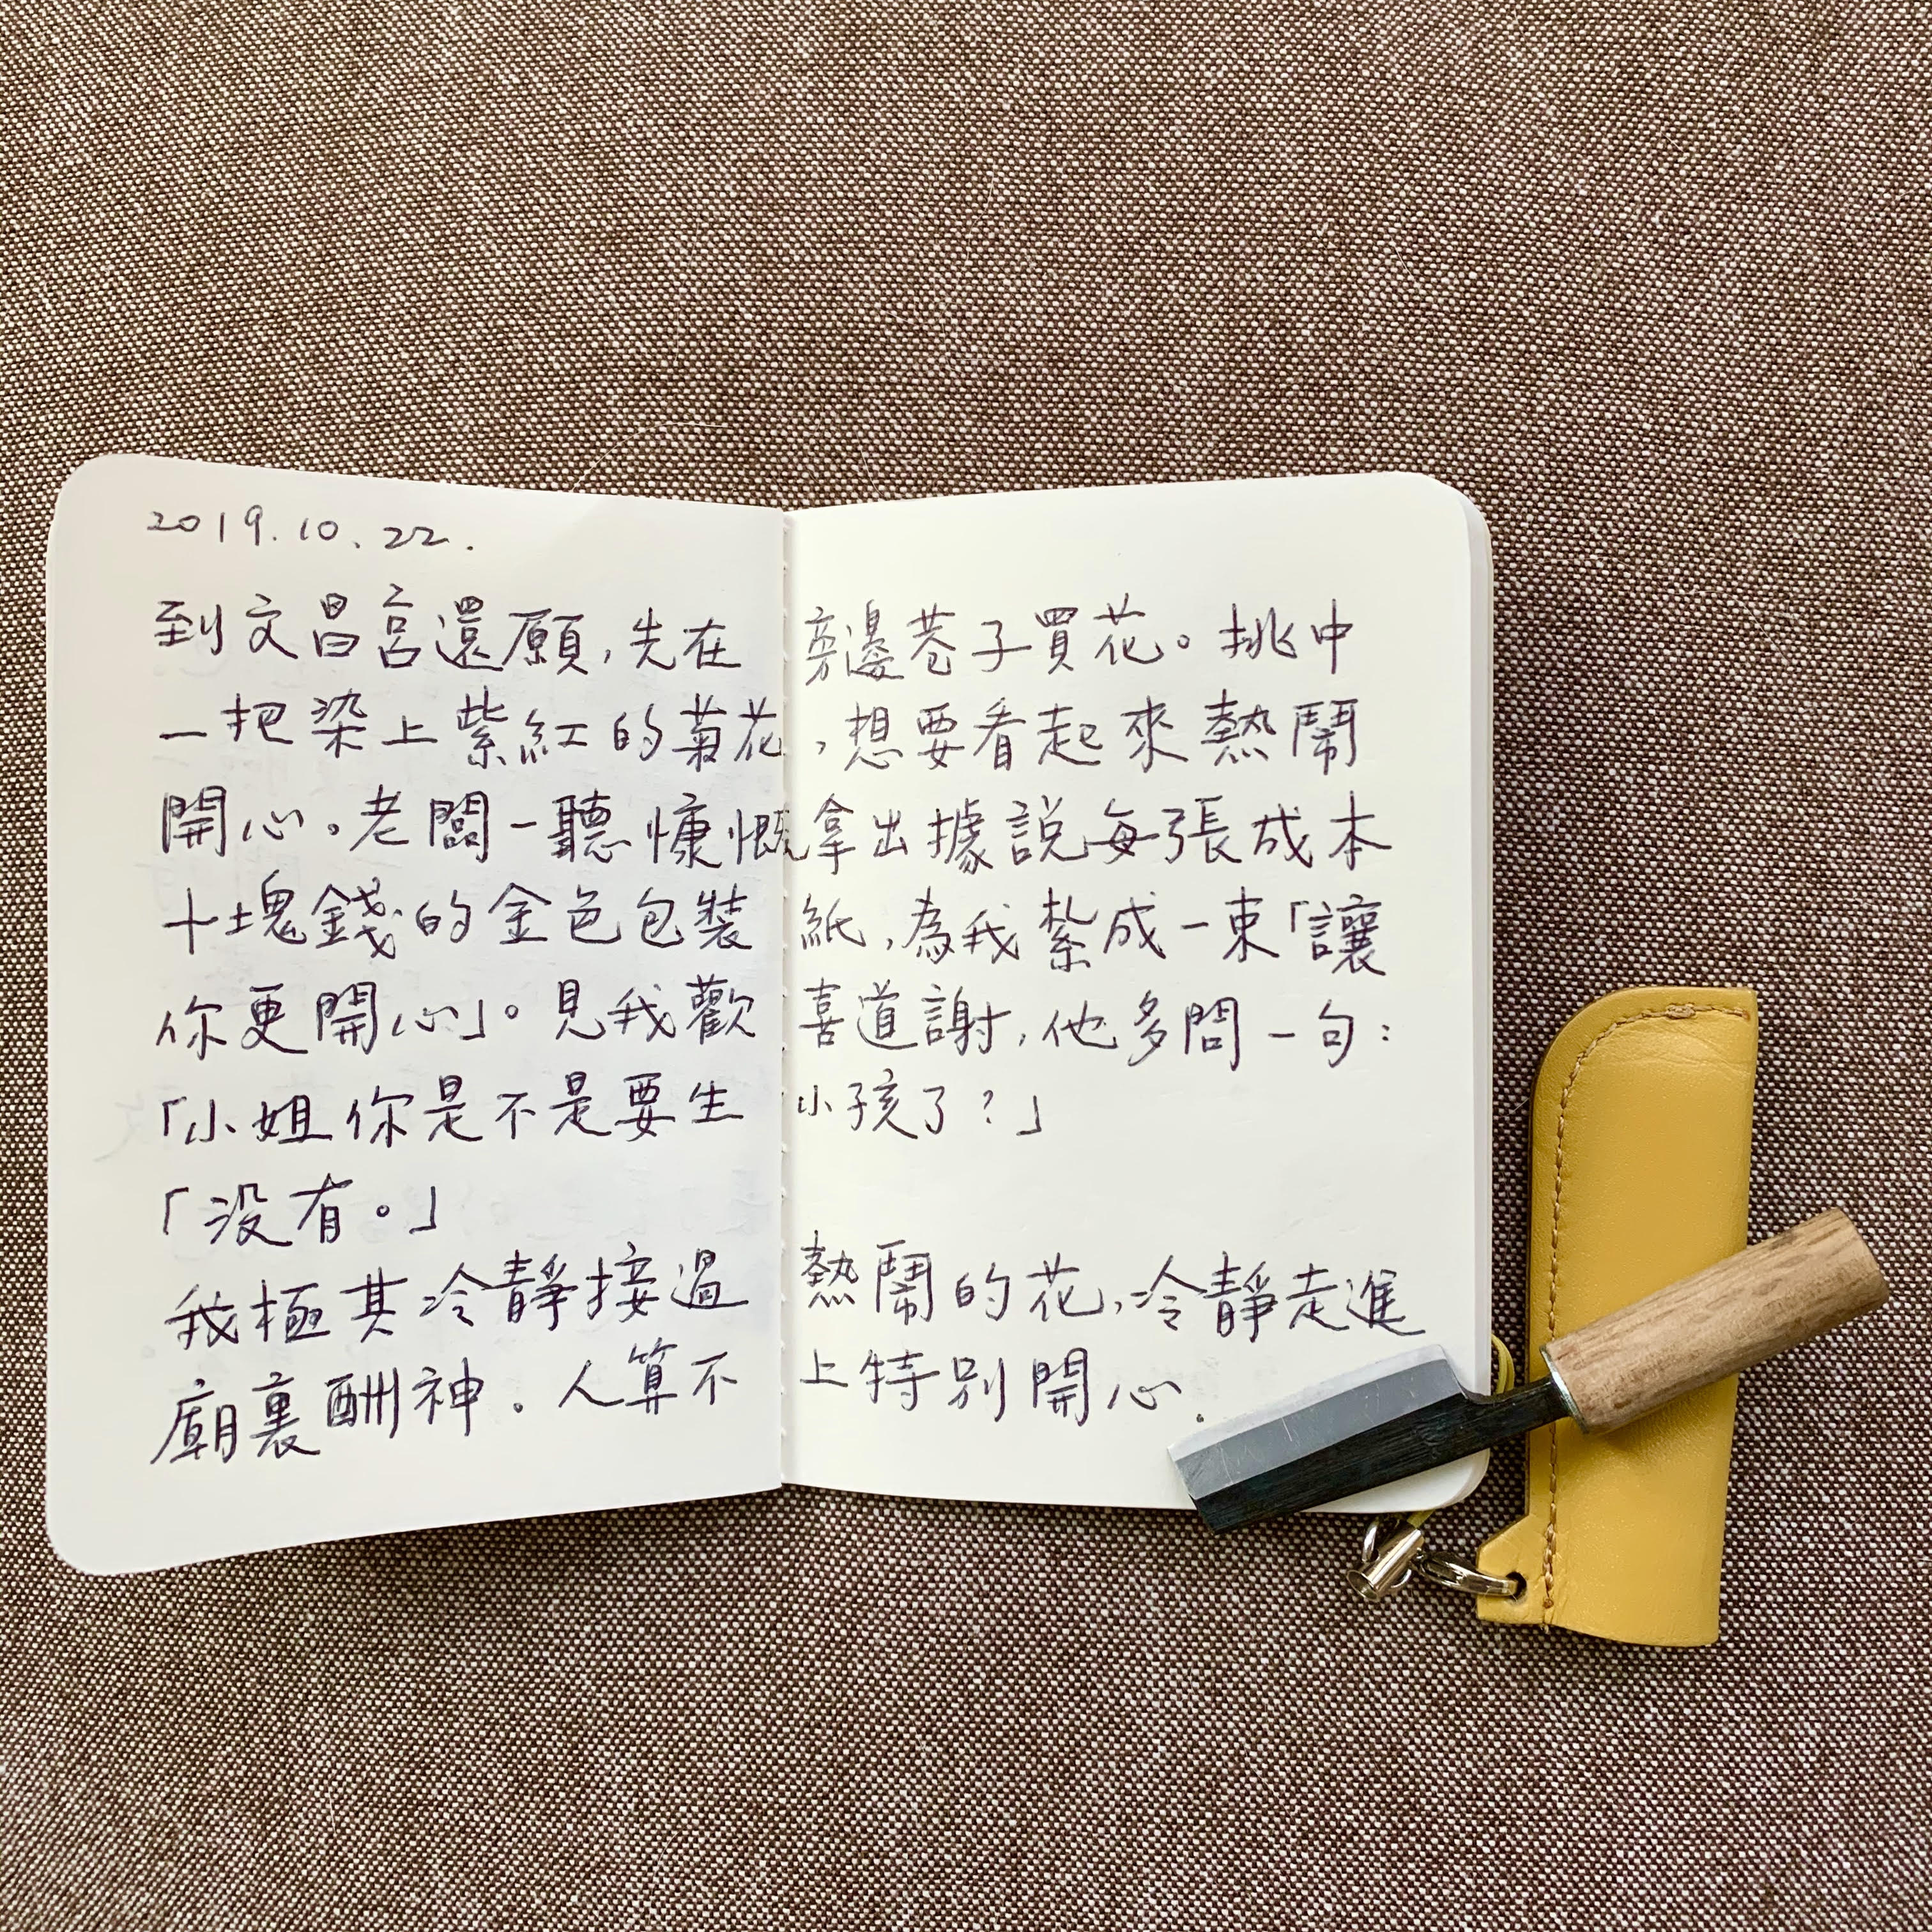 2019.10.22.
到文昌宮還願,先在旁邊巷子買花。挑中
一把染上紫紅的菊花,想要看起來熱鬧
開心。老闆一聽慷慨拿出據說每張成本
十塊錢的金色包裝紙,為我紮成一束「讓
你更開心」。見我歡喜道謝,他多問一句:
「小姐你是不是要生小孩了?」
「沒有。」
我極其冷靜接過熱鬧的花,冷靜走進
廟裏酬神。人算不上特別開心.